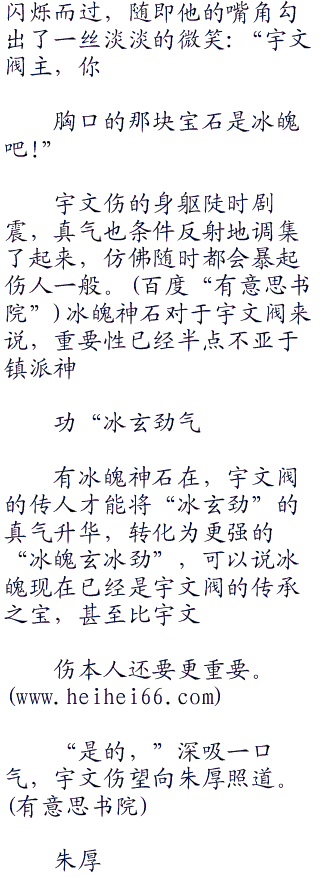 闪烁而过，随即他的嘴角勾
出了一丝淡淡的微笑：“宇文
阀主，你
胸口的那块宝石是冰魄
吧！”
宇文伤的身躯陡时剧
震，真气也条件反射地调集
了起来，仿佛随时都会暴起
伤人一般。(百度“有意思书
院”)冰魄神石对于宇文阀来
说，重要性已经半点不亚于
镇派神
功“冰玄劲气
有冰魄神石在，宇文阀
的传人才能将“冰玄劲”的
真气升华，转化为更强的
“冰魄玄冰劲”，可以说冰
魄现在已经是宇文阀的传承
之宝，甚至比宇文
伤本人还要更重要。
(www.heihei66.com)
“是的，”深吸一口
气，宇文伤望向朱厚照道。
(有意思书院)
朱厚